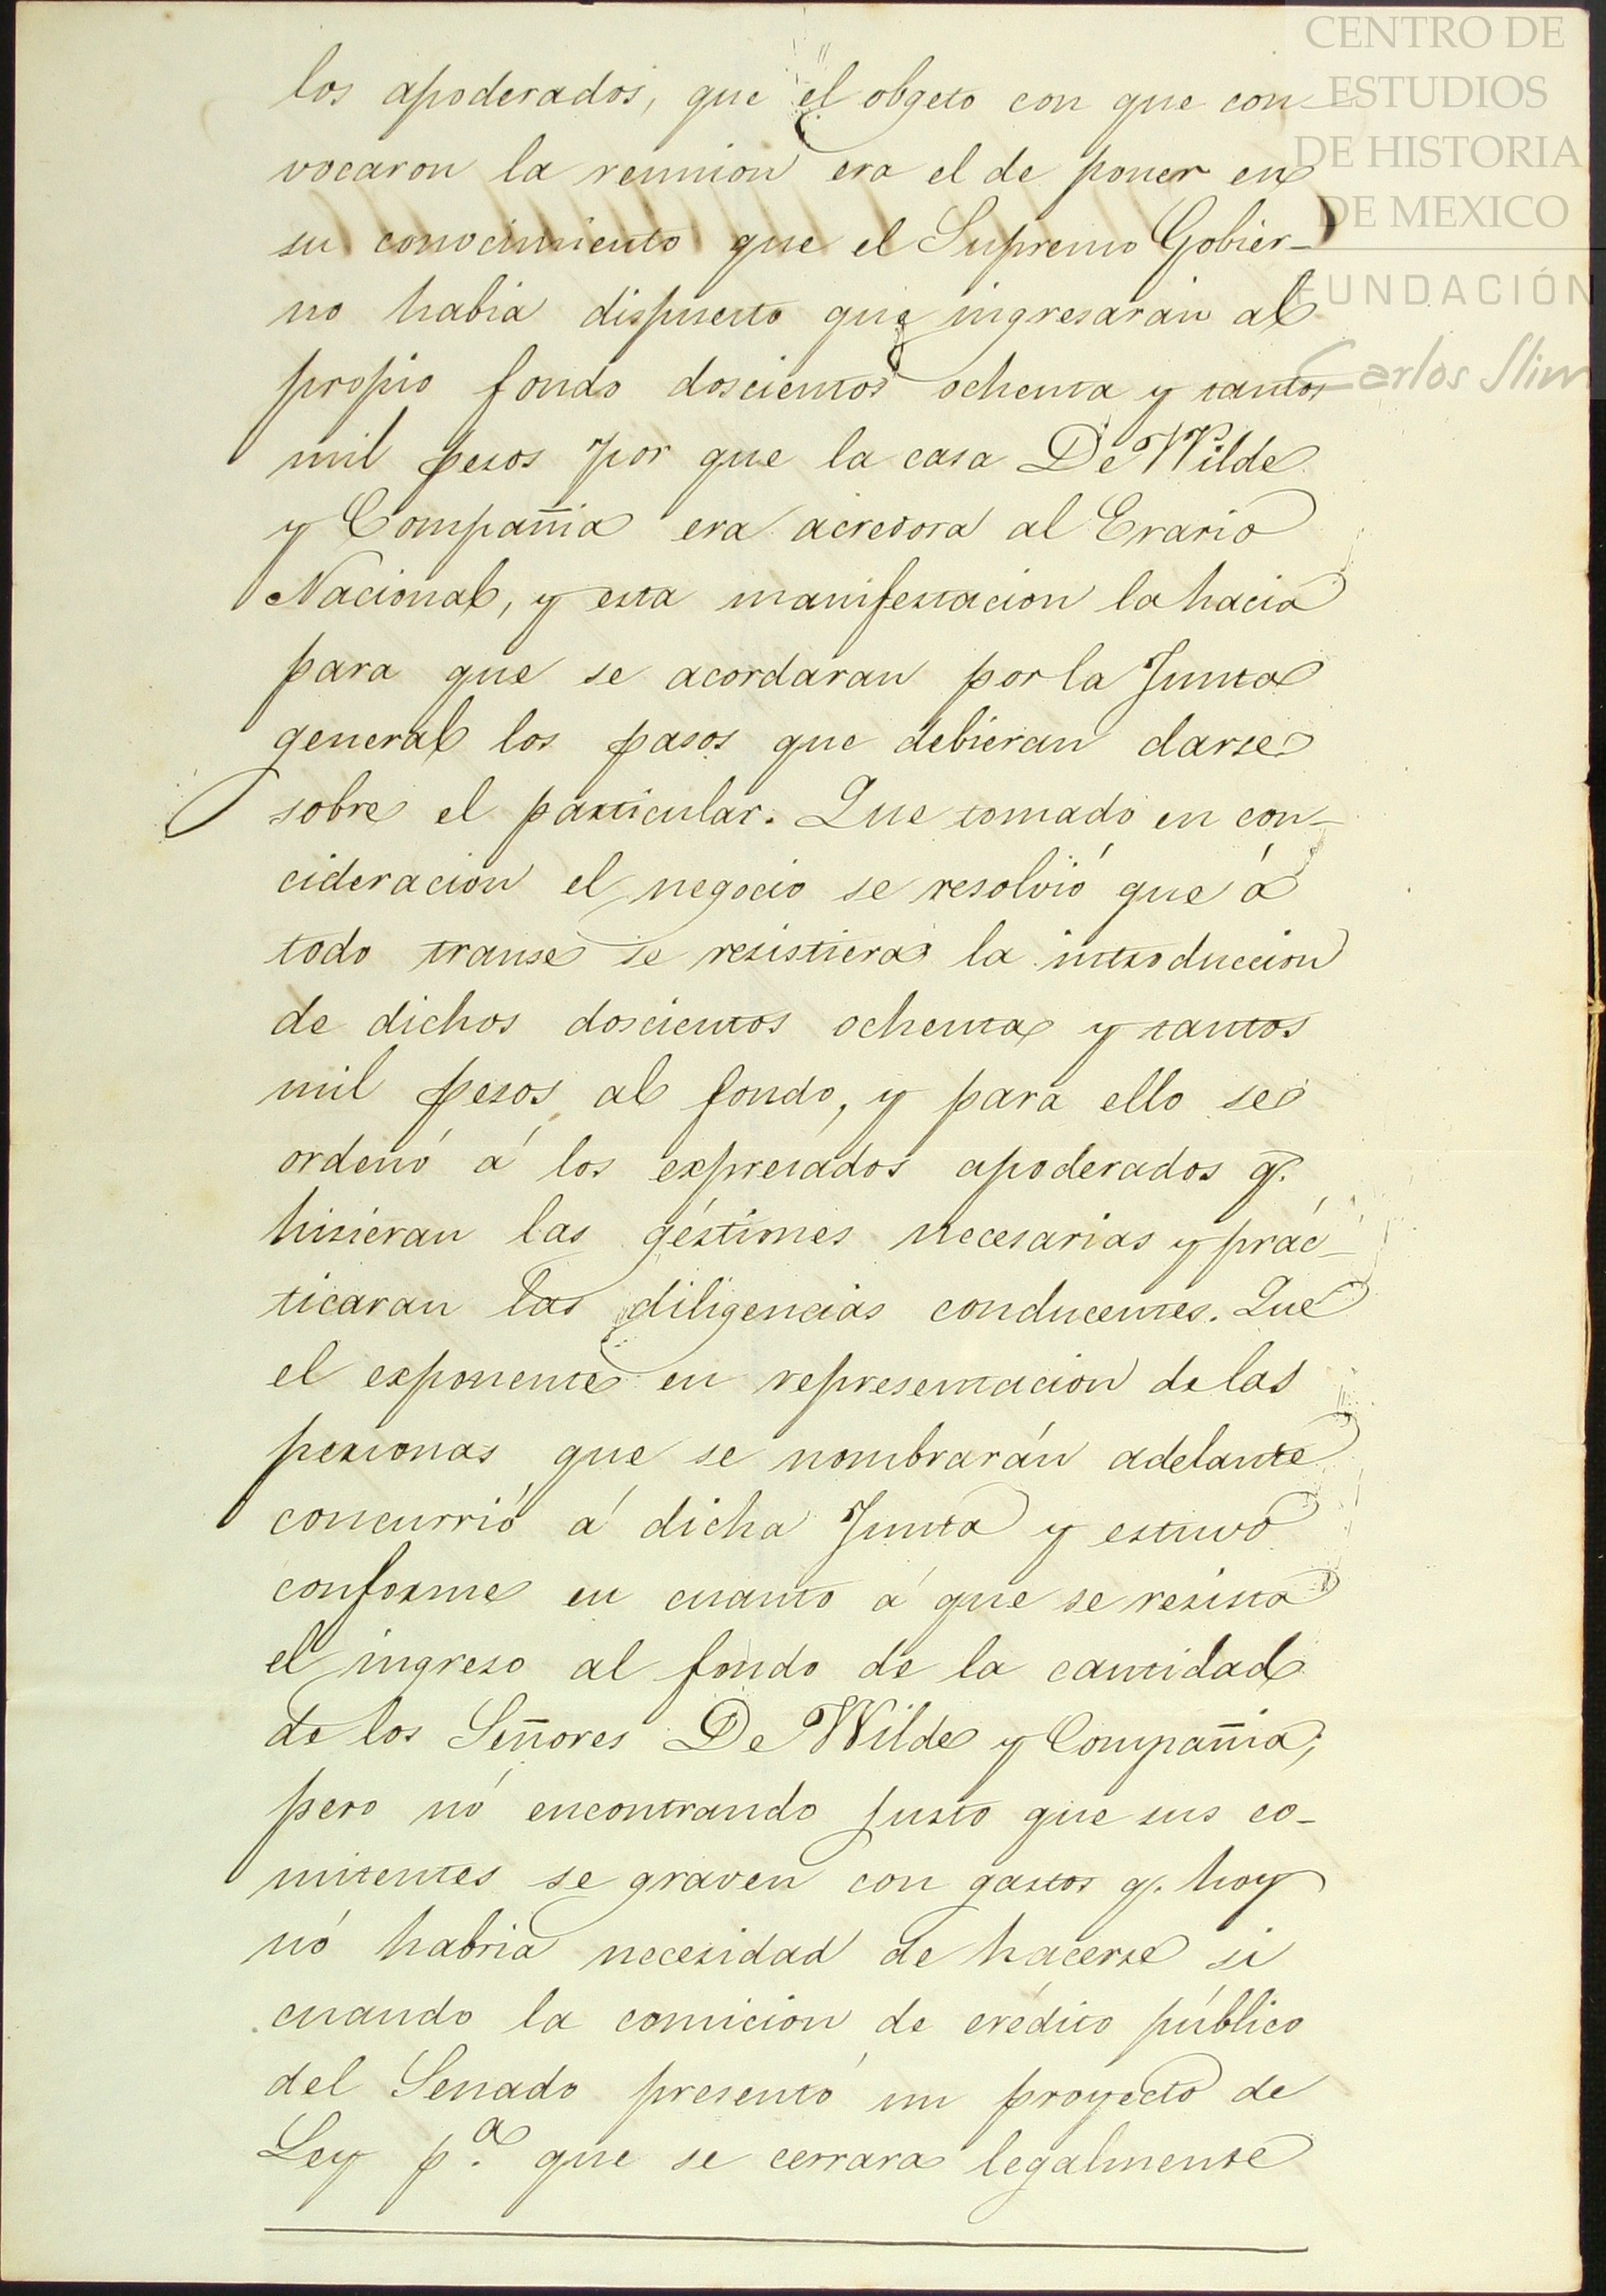 CENTRO DE
ESTUDIOS
DE HISTORIA
DE MEXICO
FUNDACIÓN
Carlos Slim
los apoderados, que el obgeto con que con-
vocaron la reunion era el de poner en
su conocimiento que el Supremo Gobier-
no habia dispuesto que ingresaran al
propio fondo doscientos ochenta y tantos
mil pesos por que la casa De Wilde
y Compañia era acreedora al Erario
Nacional, y esta manifestacion la hacia
para que se acordaran por la Junta
general los pasos que debieran darse
sobre el particular. Que tomado en con-
cideracion el negocio se resolvió que á
todo transe se resistiera la introduccion
de dichos doscientos ochenta y tantos
mil pesos al fondo, y para ello se
ordenó á los expresados apoderados q.
hisieran las géstiones necesarias y prác-
ticaran las diligencias conducentes. Que
el exponente en representacion de las
personas que se nombrarán adelante
concurrió á dicha Junta y estuvo
conforme en cuanto á que se resista
el ingreso al fondo de la cantidad
de los Señores De Wilde y Compañia;
pero nó encontrando justo que sus co-
mitentes se graven con gastos q. hoy
nó habria necesidad de hacerse si
cuando la comicion de crédito público
del Senado presentó un proyecto de
Ley p.ª que se cerrara legalmente